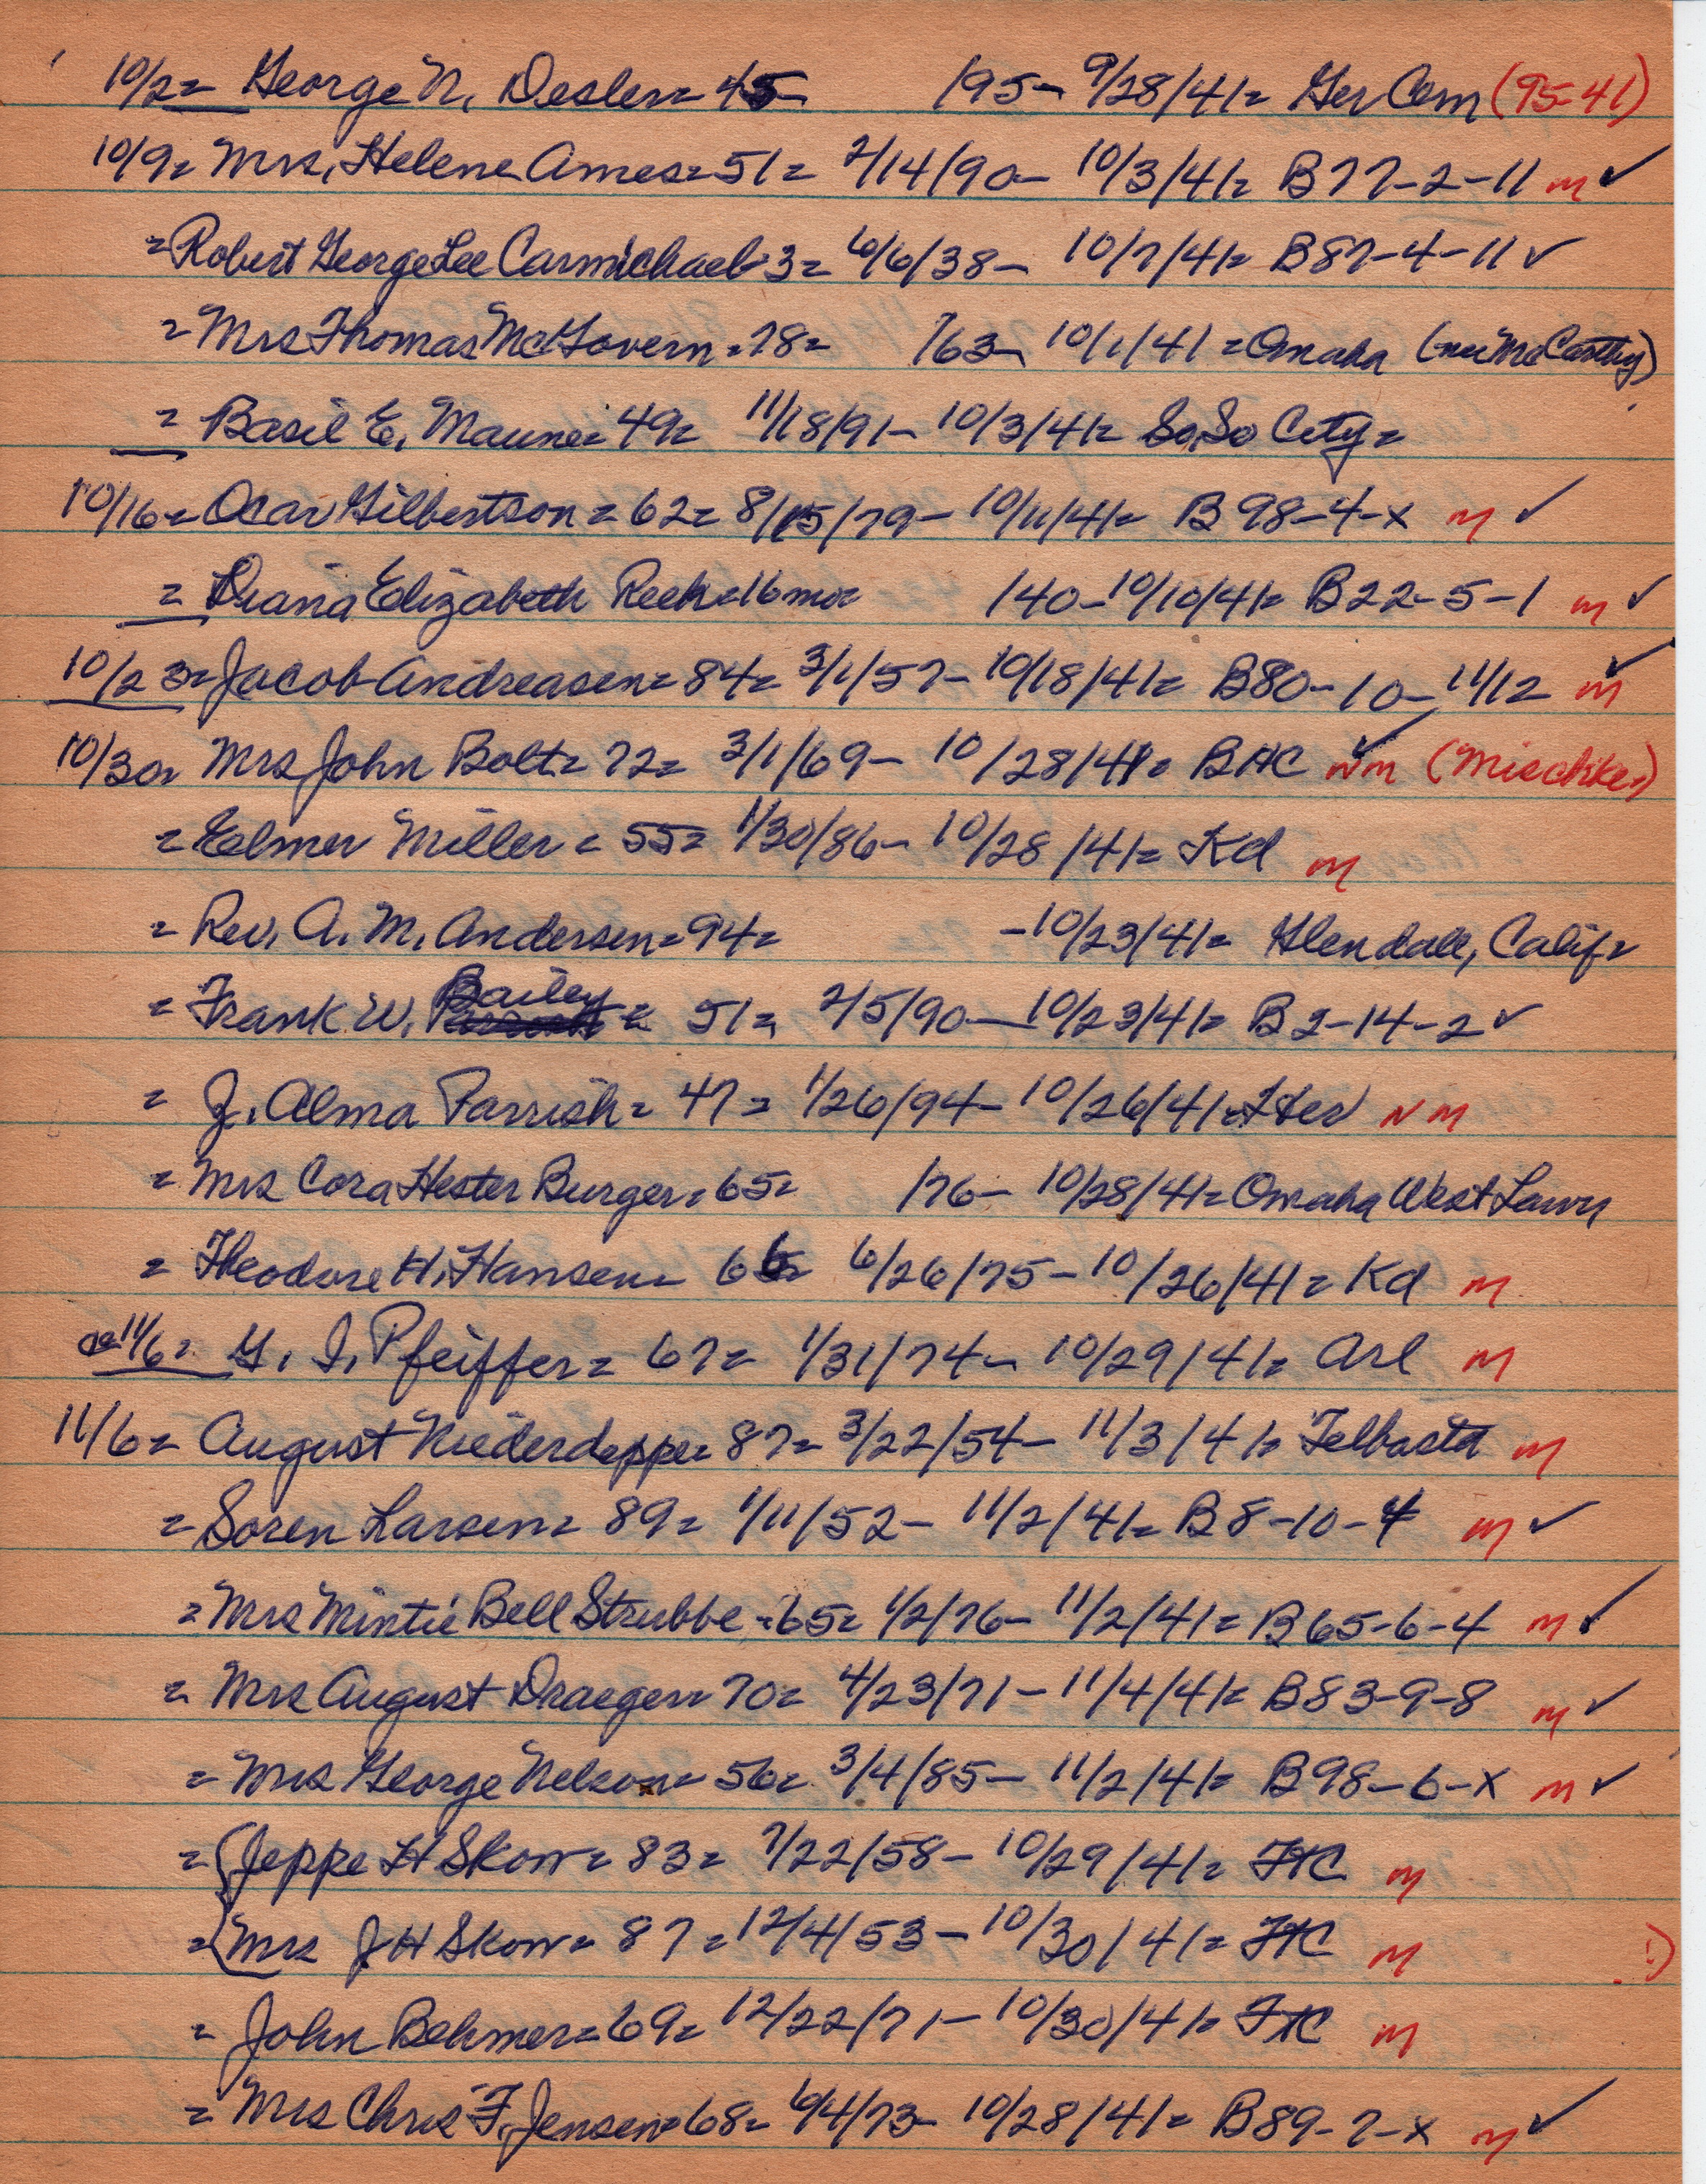 10/2= George N. Desler= 45- /95- 9/28/41= Ger Cem (95-41)
10/9= Mrs. Helene Ames=51= 2/14/90- 10/3/41= B77-2-11 m ✓
=Robert George Lee Carmichael-3= 6/6/38- 10/7/41= B87-4-11 ✓
=Mrs Thomas McGovern=78= /63- 10/1/41=Omaha (nee McCarthy)
= Basil E. Maune=49= 11/18/91- 10/3/41= So. So City=
10/16= Ocar Gilbertson=62= 8/15/79- 10/11/41= B98-4-x m ✓
= Diana Elizabeth Reeh=16mo= /40-10/10/41= B22-5-1 m ✓
10/23=Jacob Andreasen=84= 3/1/57- 10/18/41= B80-10-11/12 m ✓
10/30= Mrs John Bolt= 72= 3/1/69- 10/28/41= BAC ✓ NM (Mischke)
=Elmer Miller= 55= 1/30/86- 10/28/41= Kd m
= Rev. A. M. Andersen=94= -10/23/41= Glendale, Calif=
= Frank W. Bailey = 51= 2/5/90-10/23/41= B2-14-2 ✓
= J. Alma Parrish= 47= 1/26/94- 10/26/41= Her NM
= Mrs Cora Hester Burger=65= /76- 10/28/41=Omaha West Lawn
= Theodore H. Hansen= 66= 6/26/75-10/26/41= Kd m
11/6= G. I. Pfeiffer= 67= 1/31/74- 10/29/41= Arl m
11/6= August Niederdeppe= 87= 3/22/54- 11/3/41= Telbasta m
=Soren Larsen= 89= 1/11/52- 11/2/41= B8-10-4 m ✓
=Mrs Mintie Bell Strubbe=65= 1/2/76- 11/2/41= B65-6-4 m ✓
= Mrs August Draeger= 70= 4/23/71- 11/4/41= B83-9-8 m ✓
= Mrs George Nelson= 56= 3/4/85- 11/2/41= B98-6-x m ✓
={Jeppe H Skow= 83= 7/22/58- 10/29/41= FtC m
={Mrs J H Skow= 87=12/4/53-10/30/41= FtC m
= John Behmer=69= 12/22/71- 10/30/41= FtC m
= Mrs Chris F. Jensen=68= 6/4/73- 10/28/41= B89-7-x m ✓